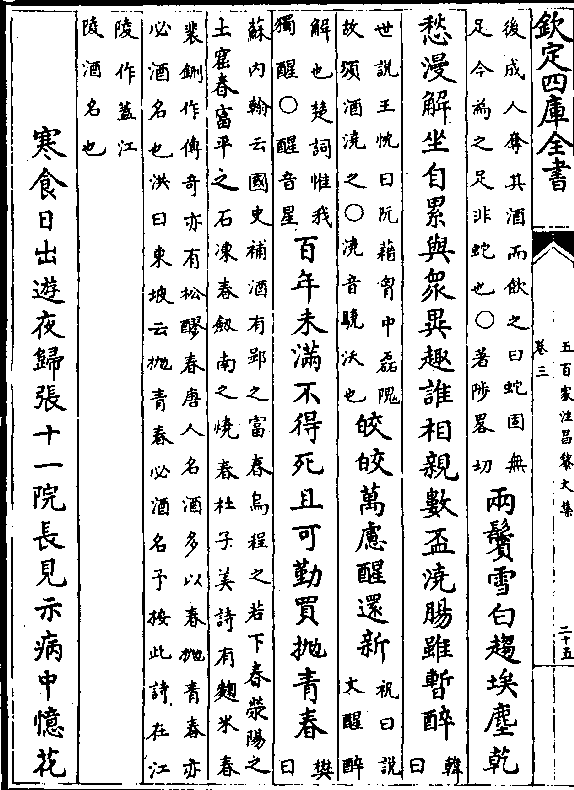 欽定四庫全書
五百家注昌黎文集
卷三
二十五
後成人奪其酒而飲之曰蛇固無
足今為之足非蛇也○著陟畧切
兩鬢雪白趨埃塵乾
愁漫解坐自累與衆異趣誰相親數盃澆腸雖暫醉
韓曰
世說王忱曰阮藉胷中磊隗
故須酒澆之○澆音驍沃也
皎皎萬慮醒還新
祝曰說
文醒醉
解也楚詞惟我
獨醒○醒音星
百年未滿不得死且可勤買抛青春
樊曰
蘇内翰云國史補酒有郢之富春烏程之若下春滎陽之
土窟春富平之石凍春劒南之燒春杜子美詩有麴米春
裴鉶作傳奇亦有松醪春唐人名酒多以春抛青春亦
必酒名也洪曰東坡云抛青春必酒名予按此詩在江
陵作蓋江
陵酒名也
寒食日出遊夜歸張十一院長見示病中憶花